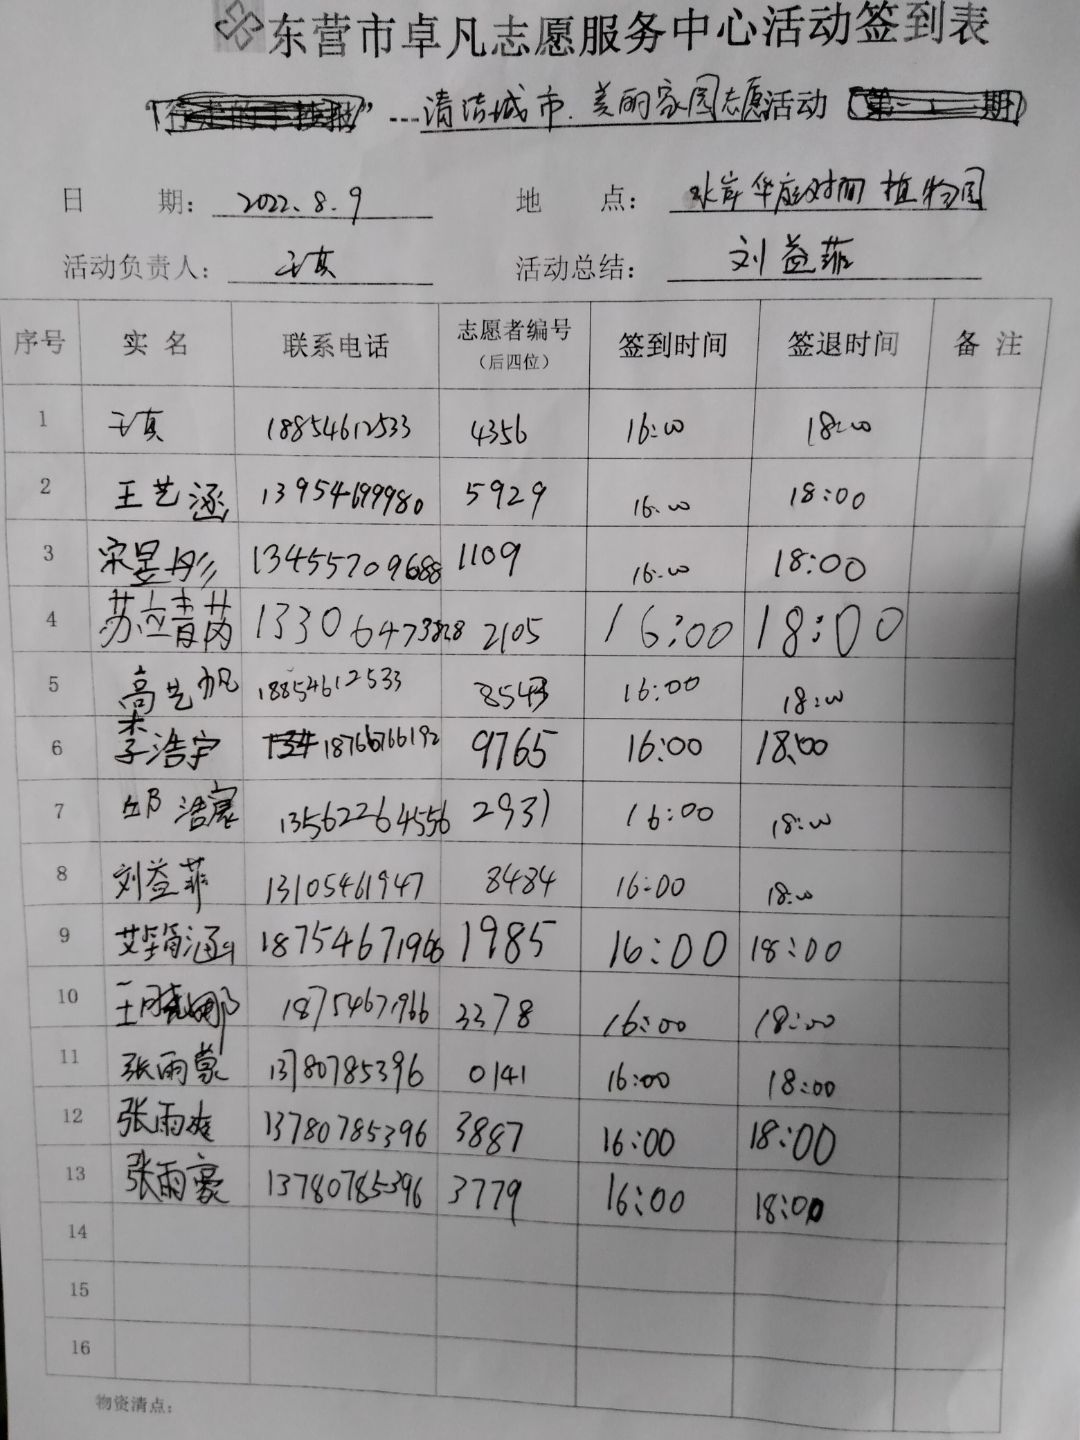 东营市卓凡志愿服务中心活动签到表
"行走的手抄报"---清洁城市.美丽家园志愿活动(第一1期)
日 期: 2022.8.9 地 点: 水岸华庭对面植物园
活动负责人: 王真 活动总结: 刘益菲
序号 实 名 联系电话 志愿者编号 签到时间 签退时间 备 注
(后四位)
1 王真 18854612533 4356 16:00 18:00
2 王艺涵 13954699980 5929 16:00 18:00
3 宋昱彤 13455709688 1109 16:00 18:00
4 苏 13306473828 2105 16:00 18:00
5 高艺帆 18854612533 8543 16:00 18:00
6 李浩宇 18766766192 9765 16:00 18:00
7 邱浩宸 13562264556 2931 16:00 18:00
8 刘益菲 13105461947 8484 16:00 18:00
9 艾 涵 18754671966 1985 16:00 18:00
10 王 娜 18754671966 3378 16:00 18:00
11 张雨蒙 13780785396 0141 16:00 18:00
12 张雨 13780785396 3887 16:00 18:00
13 张雨豪 13780785396 3779 16:00 18:00
14
15
16
物资清点: